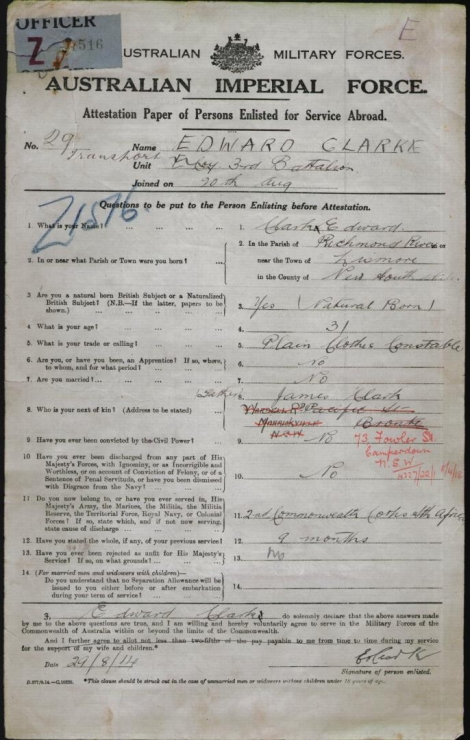 OFFICER
Z 1516
E
AUSTRALIAN MILITARY FORCES.
AUSTRALIAN IMPERIAL FORCE.
Attestation Paper of Persons Enlisted for Service Abroad.
No. 29 Name EDWARD CLARKE
Transport Unit 3rd Battalion
Joined on 20th Aug
Questions to be put to the Person Enlisting before Attestation.
Z1516.
1. What is your Name? ... 1. Clark Edward
2. In or near what Parish or Town were you born? ... 2. In the Parish of Richmond River or
near the Town of Lismore
in the County of New South
3. Are you a natural born British Subject or a Naturalized
British Subject? (N.B.—If the latter, papers to be
shown.) ... 3. Yes (Natural Born)
4. What is your age? ... 4. 31
5. What is your trade or calling? ... 5. Plain Clothes Constable
6. Are you, or have you been, an Apprentice? If so, where,
to whom, and for what period? ... 6. No
7. Are you married? ... 7. No
8. Who is your next of kin? (Address to be stated) ... 8. Father James Clark
Pacific St
Marrickville Bronte
73 Fowler St.
Camperdown
N.S.W.
9. Have you ever been convicted by the Civil Power? ... 9. No
10. Have you ever been discharged from any part of His
Majesty's Forces, with Ignominy, or as Incorrigible and
Worthless, or on account of Conviction of Felony, or of a
Sentence of Penal Servitude, or have you been dismissed
with Disgrace from the Navy? ... 10. No
11. Do you now belong to, or have you ever served in, His
Majesty's Army, the Marines, the Militia, the Militia
Reserve, the Territorial Force, Royal Navy, or Colonial
Forces? If so, state which, and if not now serving,
state cause of discharge ... 11. 2nd Commonwealth Sth Africa
12. Have you stated the whole, if any, of your previous service? 12. 9 months
13. Have you ever been rejected as unfit for His Majesty's
Service? If so, on what grounds? ... 13. No
14. (For married men and widowers with children)—
Do you understand that no Separation Allowance will be
issued to you either before or after embarkation
during your term of service? ... 14.
I, Edward Clark do solemnly declare that the above answers made
by me to the above questions are true, and I am willing and hereby voluntarily agree to serve in the Military Forces of the
Commonwealth of Australia within or beyond the limits of the Commonwealth.
And I further agree to allot not less than two-fifths of the pay payable to me from time to time during my service
for the support of my wife and children.*
Date 24/8/14
Signature of person enlisted.
*This clause should be struck out in the case of unmarried men or widowers without children under 18 years of age.